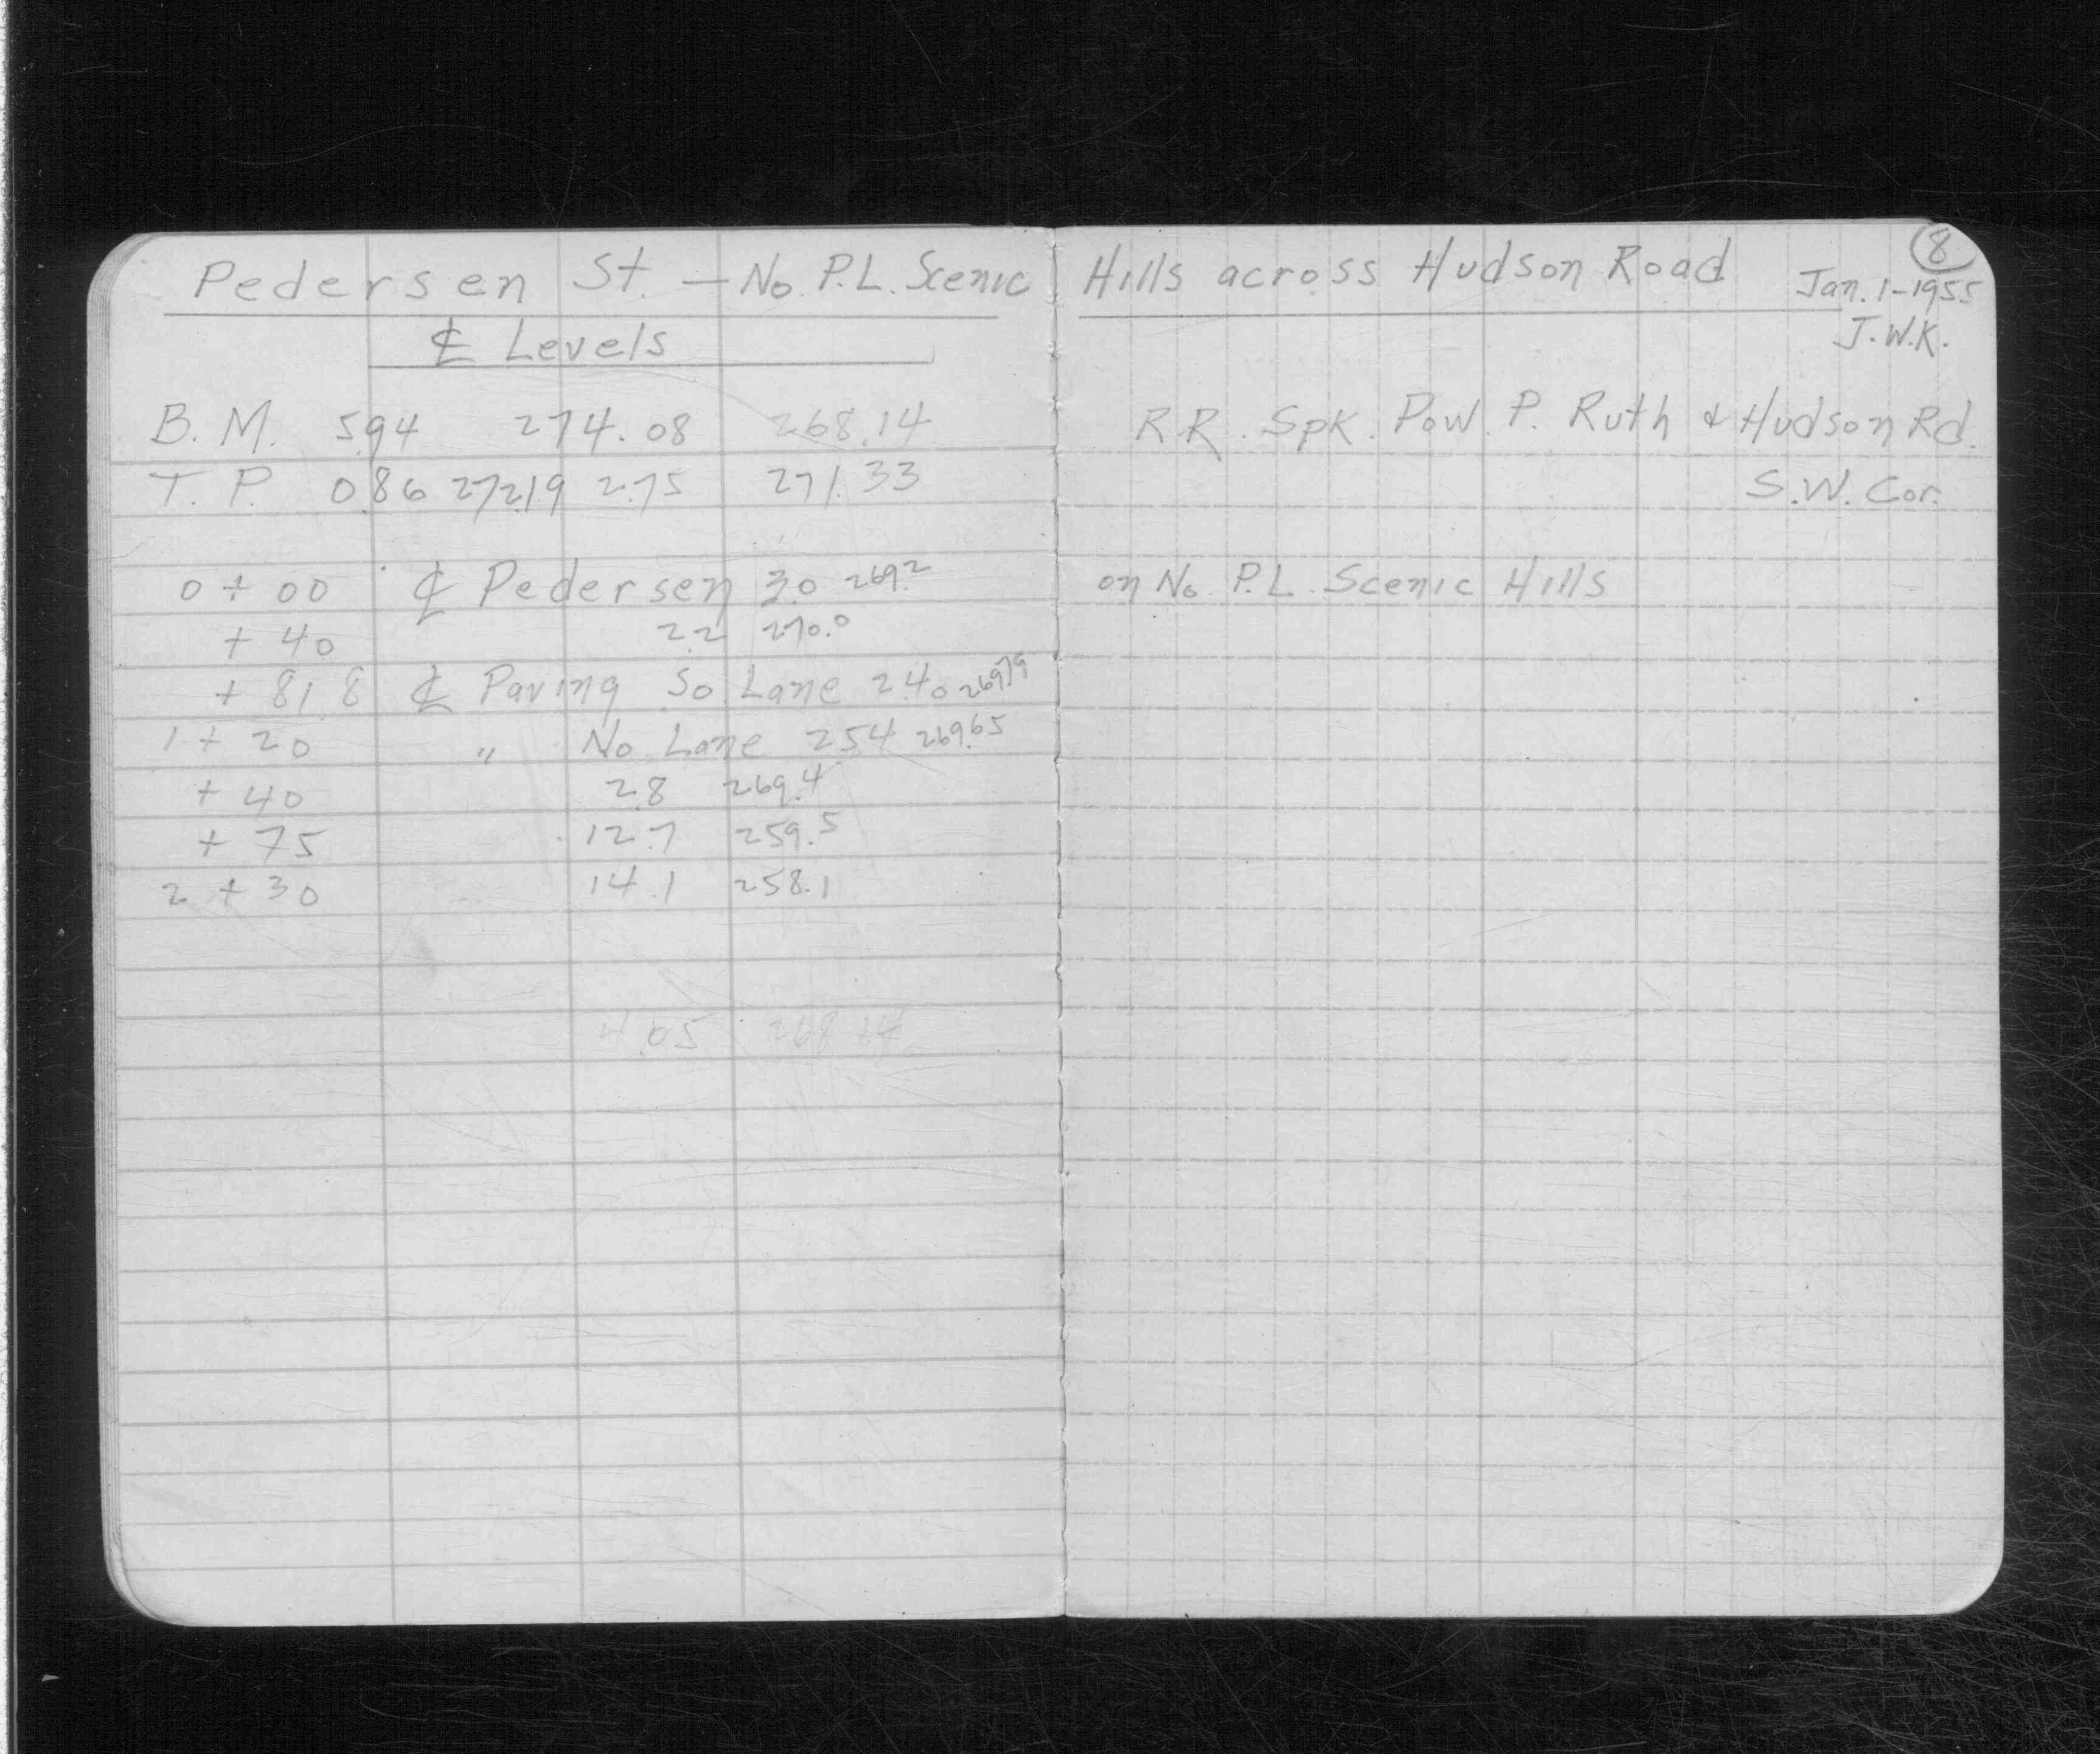 Pedersen St. — No. P.L. Scenic Hills across Hudson Road
8
Jan. 1-1955
J.W.K.
℄ Levels
B.M. 5.94 274.08 268.14 R.R. Spk. Pow. P. Ruth & Hudson Rd.
T.P. 0.86 272.19 2.75 271.33 S.W. Cor.
0 + 00 ℄ Pedersen 3.0 269.2 on No. P.L. Scenic Hills
+ 40 2.2 270.0
+ 81.8 ℄ Paving So. Lane 2.40 269.79
1 + 20 " No. Lane 2.54 269.65
+ 40 2.8 269.4
+ 75 12.7 259.5
2 + 30 14.1 258.1
4.05 268.14